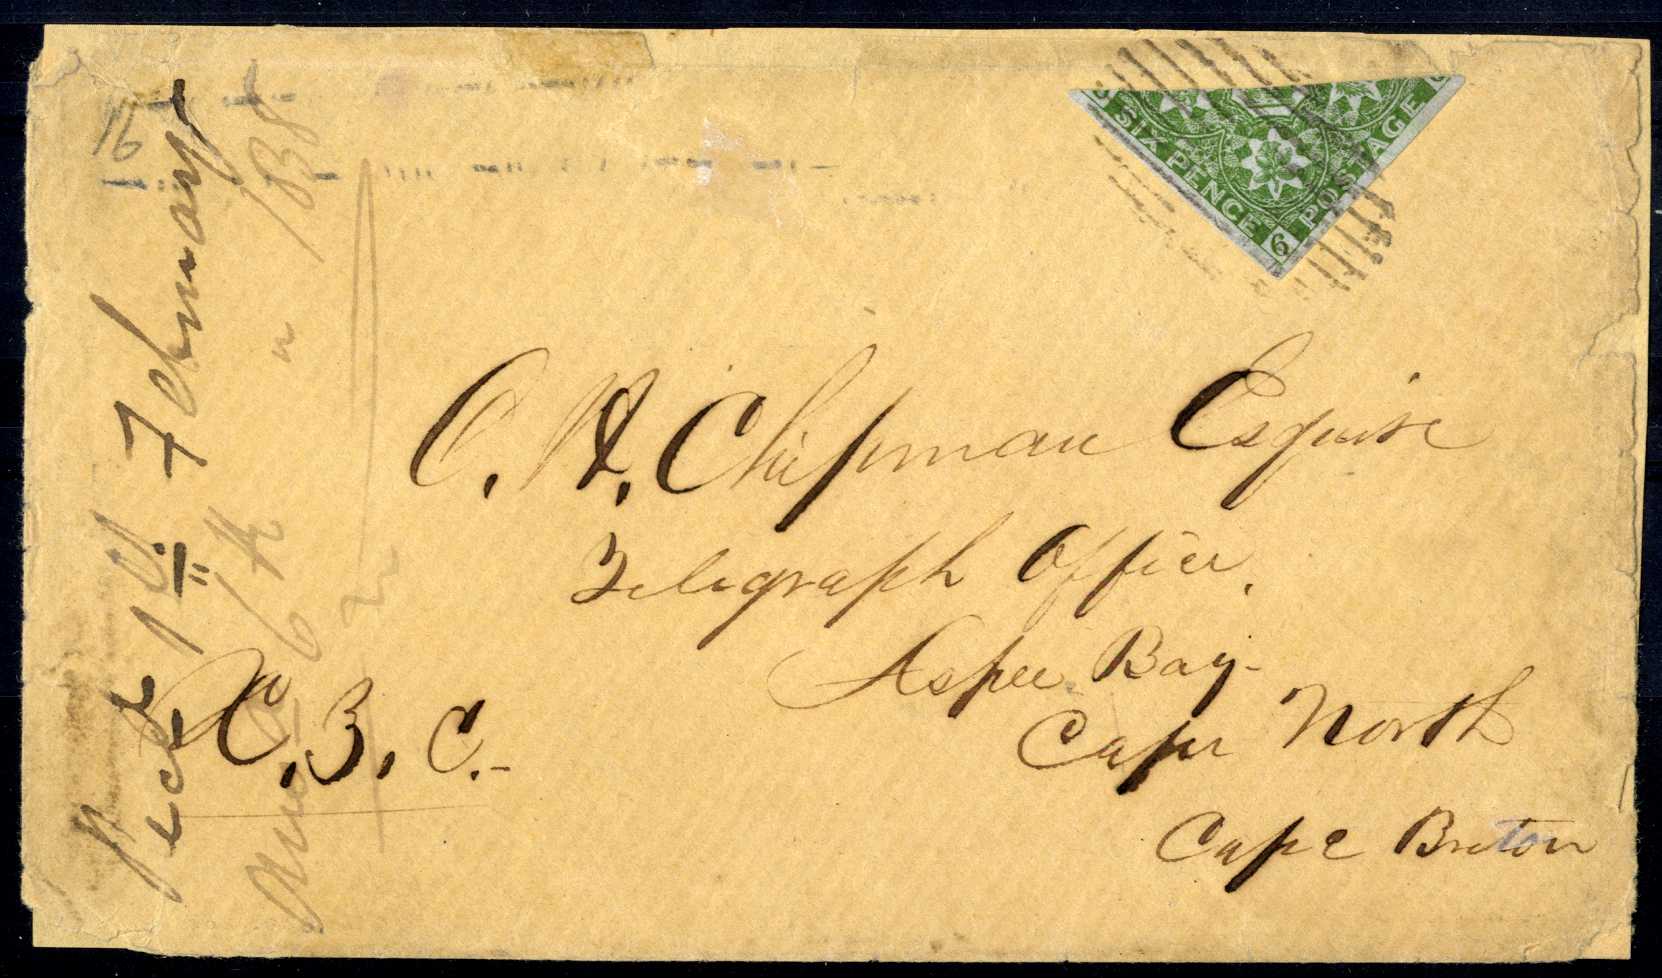 SIX PENCE
POSTAGE
6
C. H. Chipman Esquire
Telegraph Office.
Aspee Bay-
Cape North
Cape Breton
N. B. C.-
16
Recd 1st February
Ans 6th
" 1858